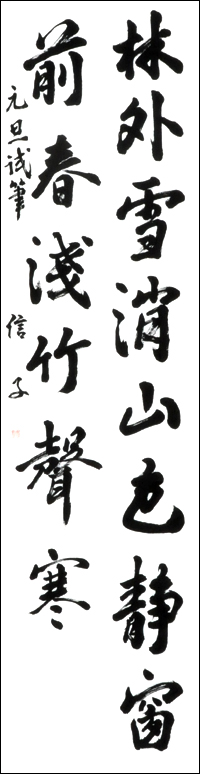 林外雪消山色静窗
前春淺竹聲寒
元旦試筆 信子